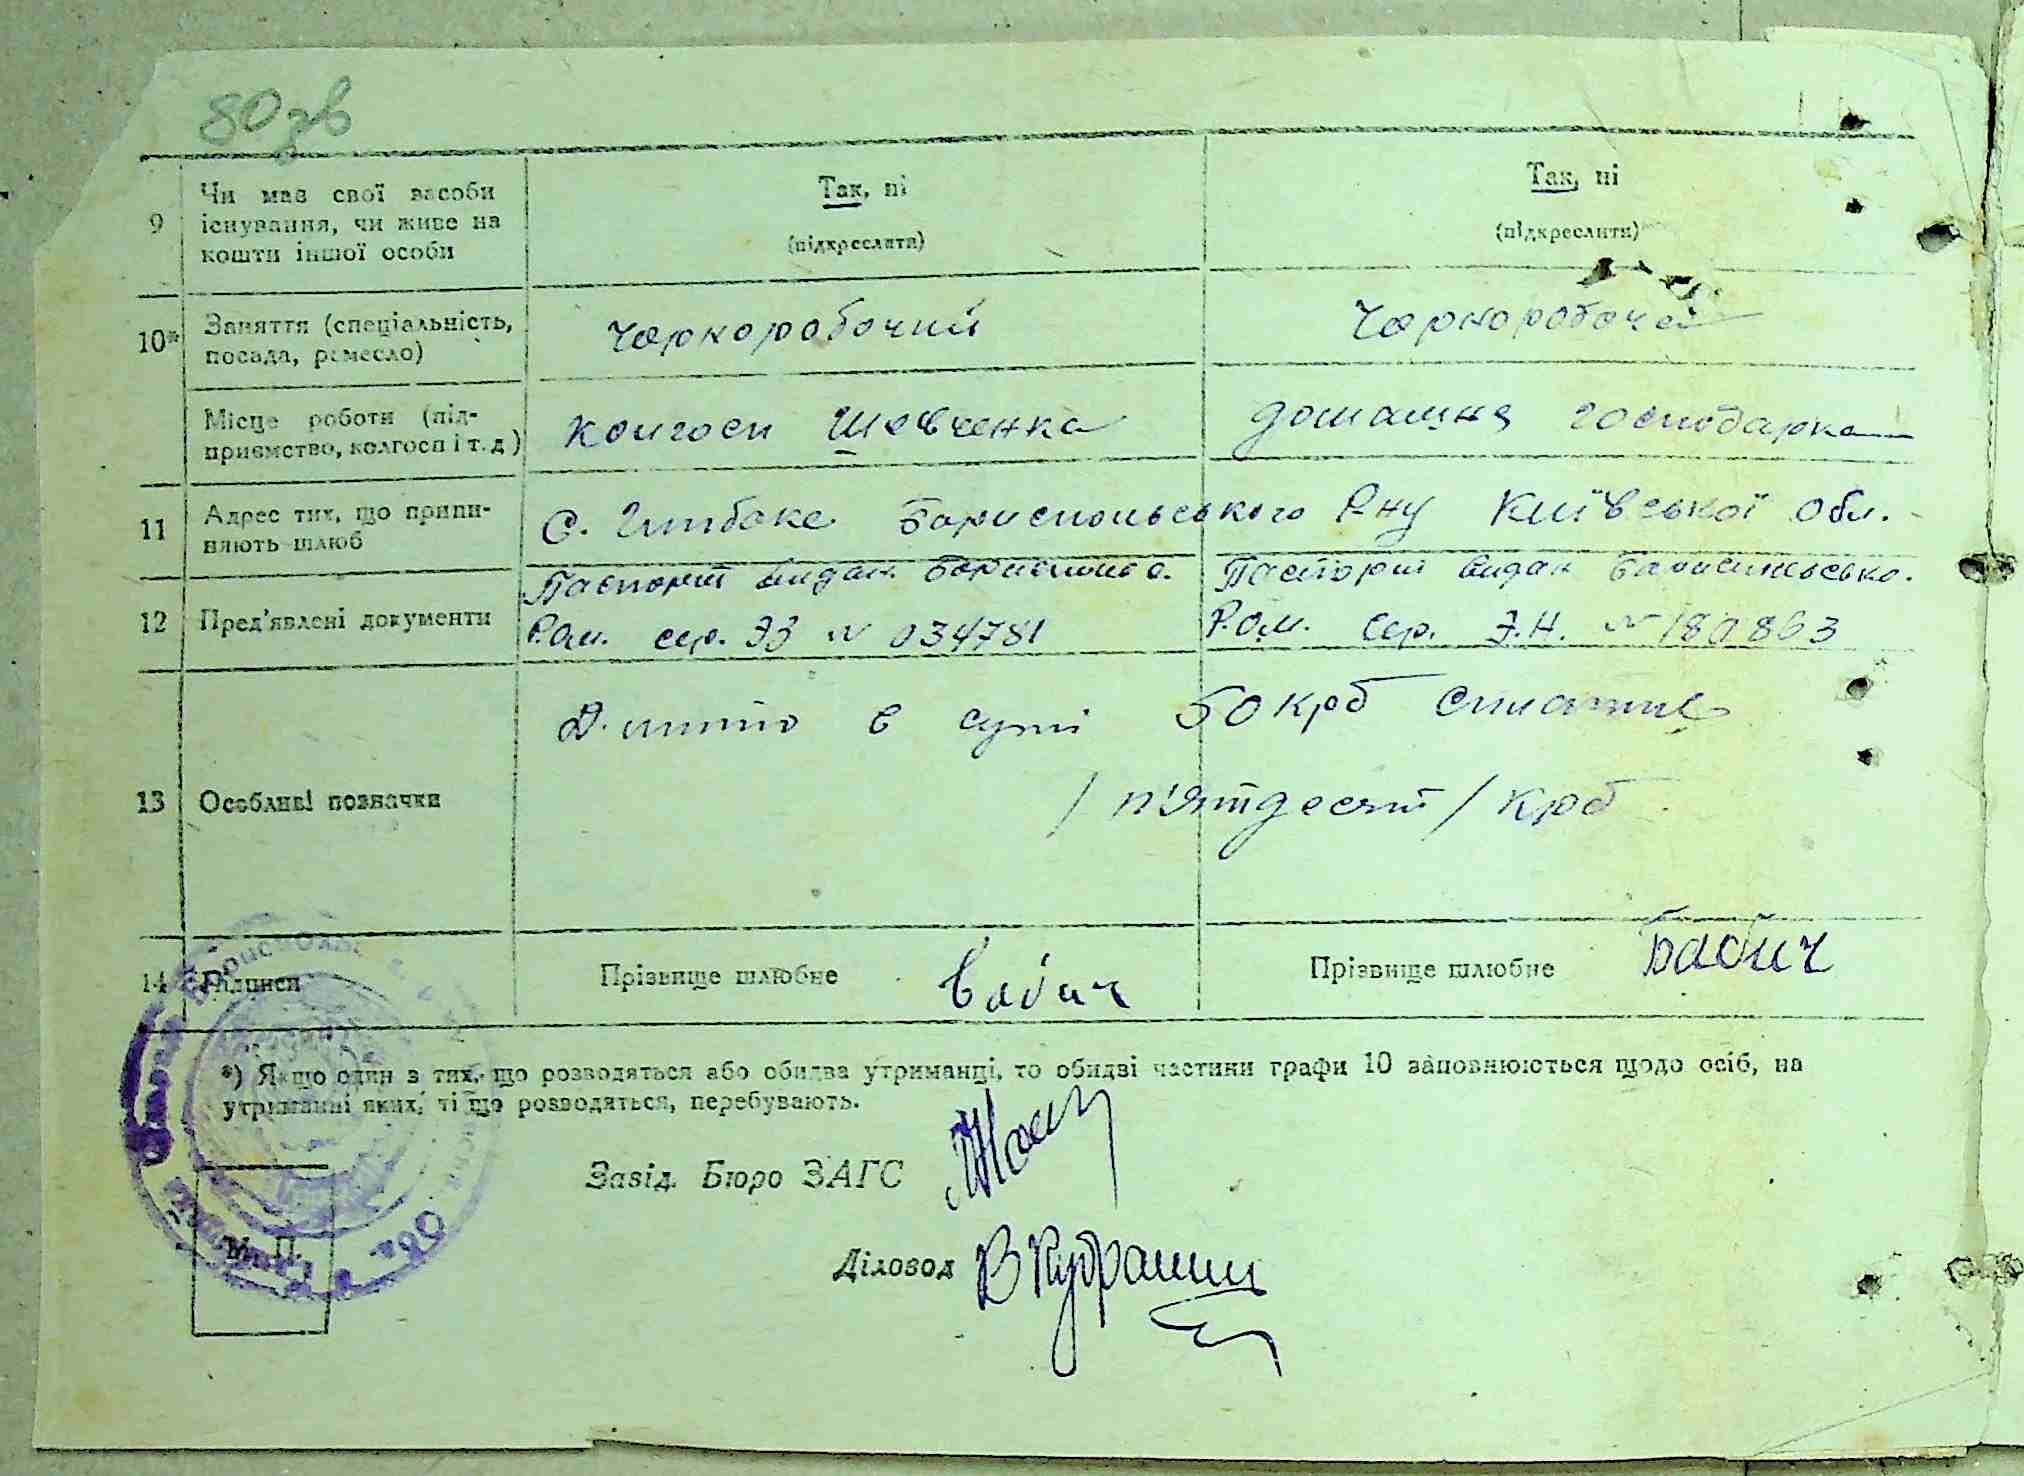 80зв
9 Чи має свої засоби існування, чи живе на кошти іншої особи
Так, ні
(підкреслити)
Так, ні
(підкреслити)
10* Заняття (спеціальність, посада, ремесло)
чорноробочий
чорноробоча
Місце роботи (підприємство, колгосп і т.д)
колгосп Шевченка
домашня господарка
11 Адрес тих, що припиняють шлюб
С. Глибоке Бориспольського Р-ну Київської Обл.
12 Пред'явлені документи
Паспорт видан
сер. ЭЗ № 034781
Паспорт видан
Р.О.М. сер. Э.Н. № 180863
13 Особливі позначки
в сумі 50 крб
/п'ятдесят/ крб
14 Підписи
Прізвище шлюбне Бабич
Прізвище шлюбне Бабич
*) Якщо один з тих, що розводяться або обидва утриманці, то обидві частини графи 10 заповнюються щодо осіб, на
утриманні яких, ті що розводяться, перебувають.
Завід. Бюро ЗАГС
Діловод
М. П.